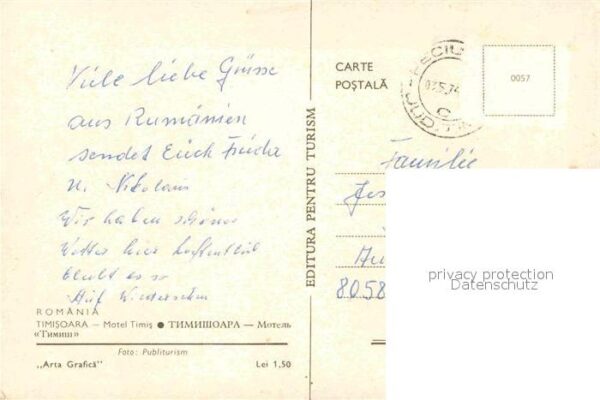 Viele liebe Grüsse
aus Rumänien
sendet Euch Frieda
u. Nikolaus
Wir haben schönes
Wetter hier hoffentlich
bleibt es so
Auf Wiedersehn
ROMÂNIA
TIMIȘOARA — Motel Timiș ● ТИМИШОАРА — Мотель
«Тимиш»
Foto: Publiturism
„Arta Grafică” Lei 1,50
EDITURA PENTRU TURISM
CARTE
POȘTALĂ
0057
Familie
8058
privacy protection
Datenschutz